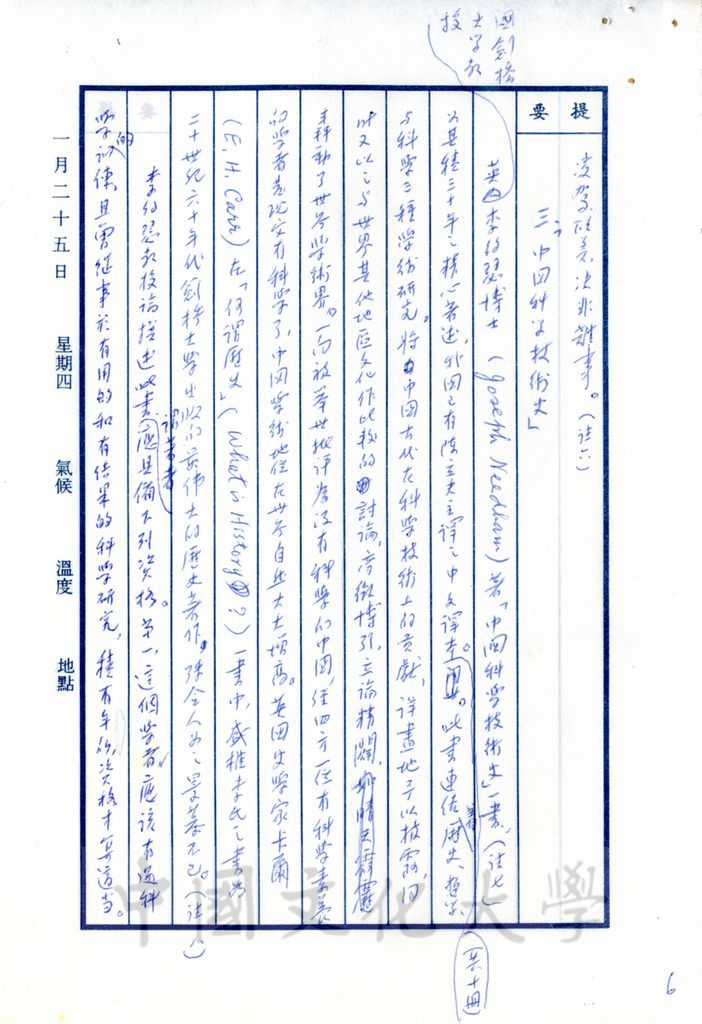 國劍橋
大學教
授
提
要
凌駕歐美,決非難事。(註六)
三、「中国科学技術史」
英李約瑟博士 (Joseph Needham) 著「中國科學技術史」一書,(註七)
(共十冊)
為其積三十年之精心著述,我國已有陳立夫主譯之中文譯本。此書連結着歷史、哲學、
與科學三種學術研究。將中國古代在科學技術上的貢獻,詳盡地予以披露,同
時又以之與世界其他地區文化作比較的討論,旁徵博引,立論精闢,如晴天霹靂
轟動了世界學術界。一向被舉世批評為沒有科學的中國,經四方一位有科學素養
的學者發現它有科學了,中國學術地位在世界自然大大增高。英国史學家卡爾
(E. H. Carr) 在「何謂歷史」(What is History?) 一書中,盛推李氏之書為
二十世紀六十年代劍橋大學出版的最偉大的歷史著作,殊令人為之景慕不已。(註八)
李約瑟教授論撰述此書
謂著者
應具備下列資格。第一,這個學者應該有過科
學的訓練且曾從事於有用的和有結果的科學研究,積有年所,資格才算適当。
一月二十五日 星期四 氣候 溫度 地點
6
中國文化大學